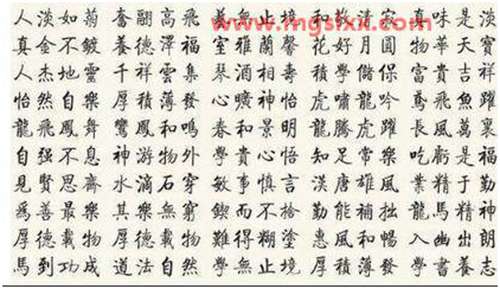 人淡如菊 奮翮高飛 無止境 和清 真味是淡
真金不鍍 養德澤福 室雅蘭馨 花好月圓 物華天寶
人杰地靈 千祥雲集 琴酒相壽 積學儲保 富貴吉祥
怡然自樂 厚積薄發 心曠神怡 虎嘯龍吟 鳶飛魚躍
龍飛鳳舞 鸞鳳和鳴 春和景明 龍騰虎躍 長風萬裏
自强不息 神游物外 學貴心悟 知足常樂 吃虧是福
見賢思齋 水滴石穿 敏事慎言 漢唐雄風 業精于勤
爲善最樂 其樂無窮 鍥而不捨 勤能補拙 龍馬精神
厚德載物 厚德載物 難得糊塗 惠風和暢 入幽出朗
馬到功成 道法自然 學無止境 厚積薄發 學書養志
www.mgsfxx.com